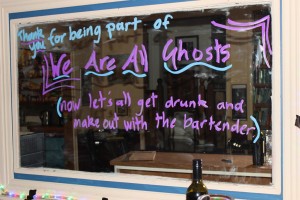 Thank you for being part of
We Are All Ghosts
(now let's all get drunk and
make out with the bartender)